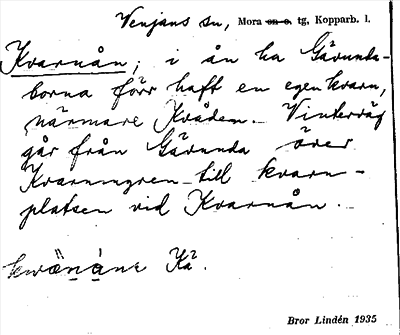 Venjans sn, Mora on o. tg, Kopparb. l.
Kvarnån; i ån ha Gävunda-
borna förr haft en egen kvarn,
närmare Kråden. Vinterväg
går från Gävunda över
Kvarnmyren till kvarn-
platsen vid Kvarnån.
Kä.
Bror Lindén 1935